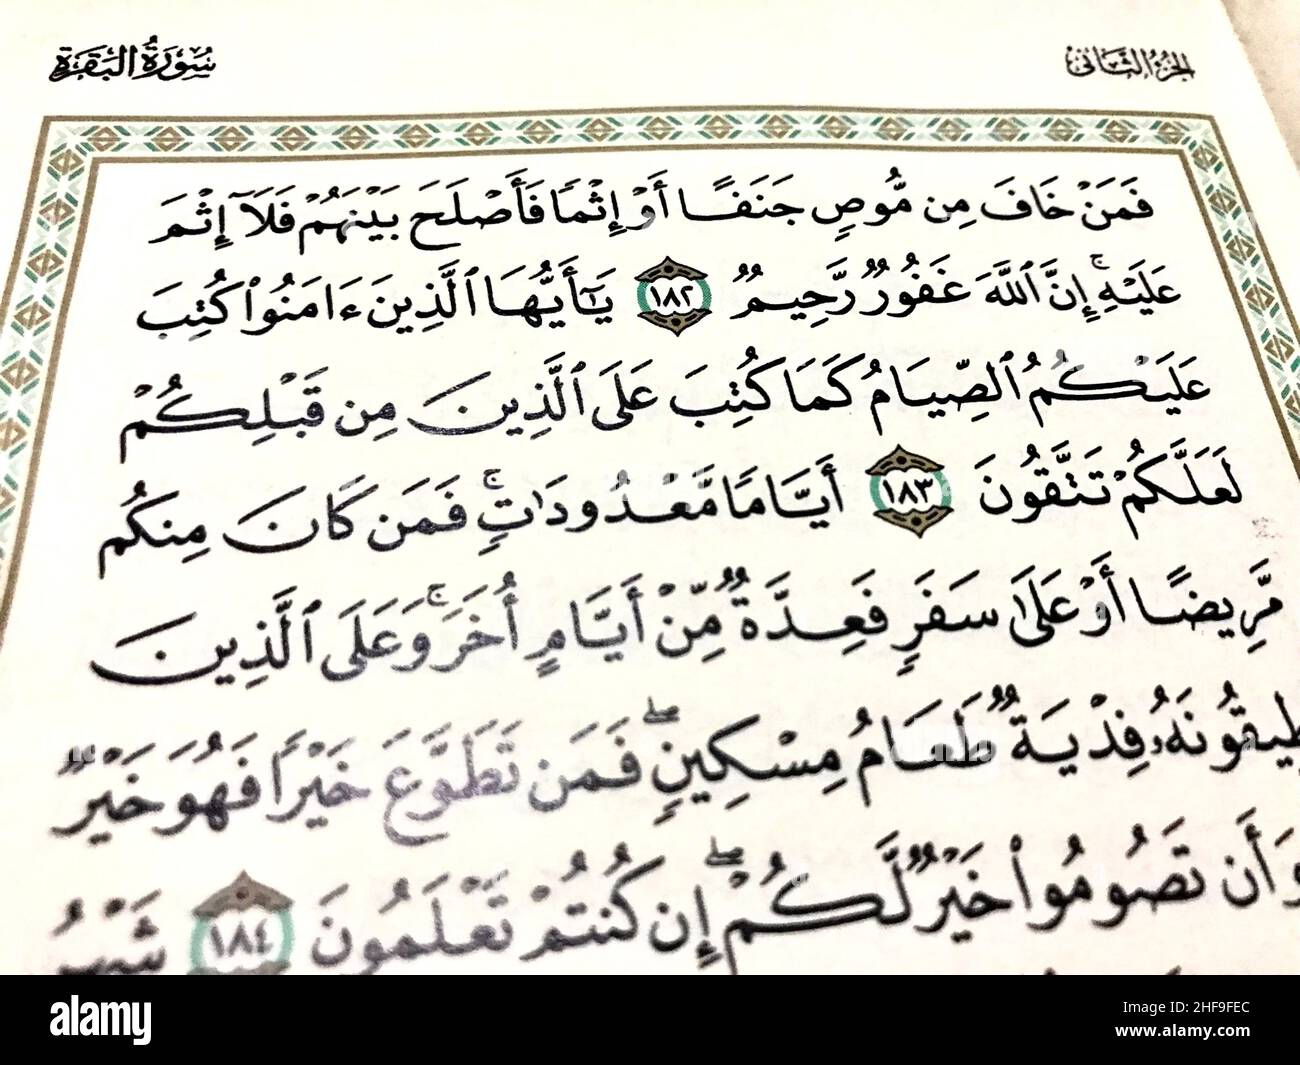 سُورَةُ البَقَرَةِ
الجُزْءُ الثَّانِي
فَمَنْ خَافَ مِن مُّوصٍ جَنَفًا أَوْ إِثْمًا فَأَصْلَحَ بَيْنَهُمْ فَلَآ إِثْمَ
عَلَيْهِ ۚ إِنَّ ٱللَّهَ غَفُورٌ رَّحِيمٌ ١٨٢ يَٰٓأَيُّهَا ٱلَّذِينَ ءَامَنُوا۟ كُتِبَ
عَلَيْكُمُ ٱلصِّيَامُ كَمَا كُتِبَ عَلَى ٱلَّذِينَ مِن قَبْلِكُمْ
لَعَلَّكُمْ تَتَّقُونَ ١٨٣ أَيَّامًا مَّعْدُودَٰتٍ ۚ فَمَن كَانَ مِنكُم
مَّرِيضًا أَوْ عَلَىٰ سَفَرٍ فَعِدَّةٌ مِّنْ أَيَّامٍ أُخَرَ ۚ وَعَلَى ٱلَّذِينَ
يُطِيقُونَهُۥ فِدْيَةٌ طَعَامُ مِسْكِينٍ ۖ فَمَن تَطَوَّعَ خَيْرًا فَهُوَ خَيْرٌ
وَأَن تَصُومُوا۟ خَيْرٌ لَّكُمْ ۖ إِن كُنتُمْ تَعْلَمُونَ ١٨٤ شَهْرُ
alamy
Image ID: 2HF9FEC
www.alamy.com